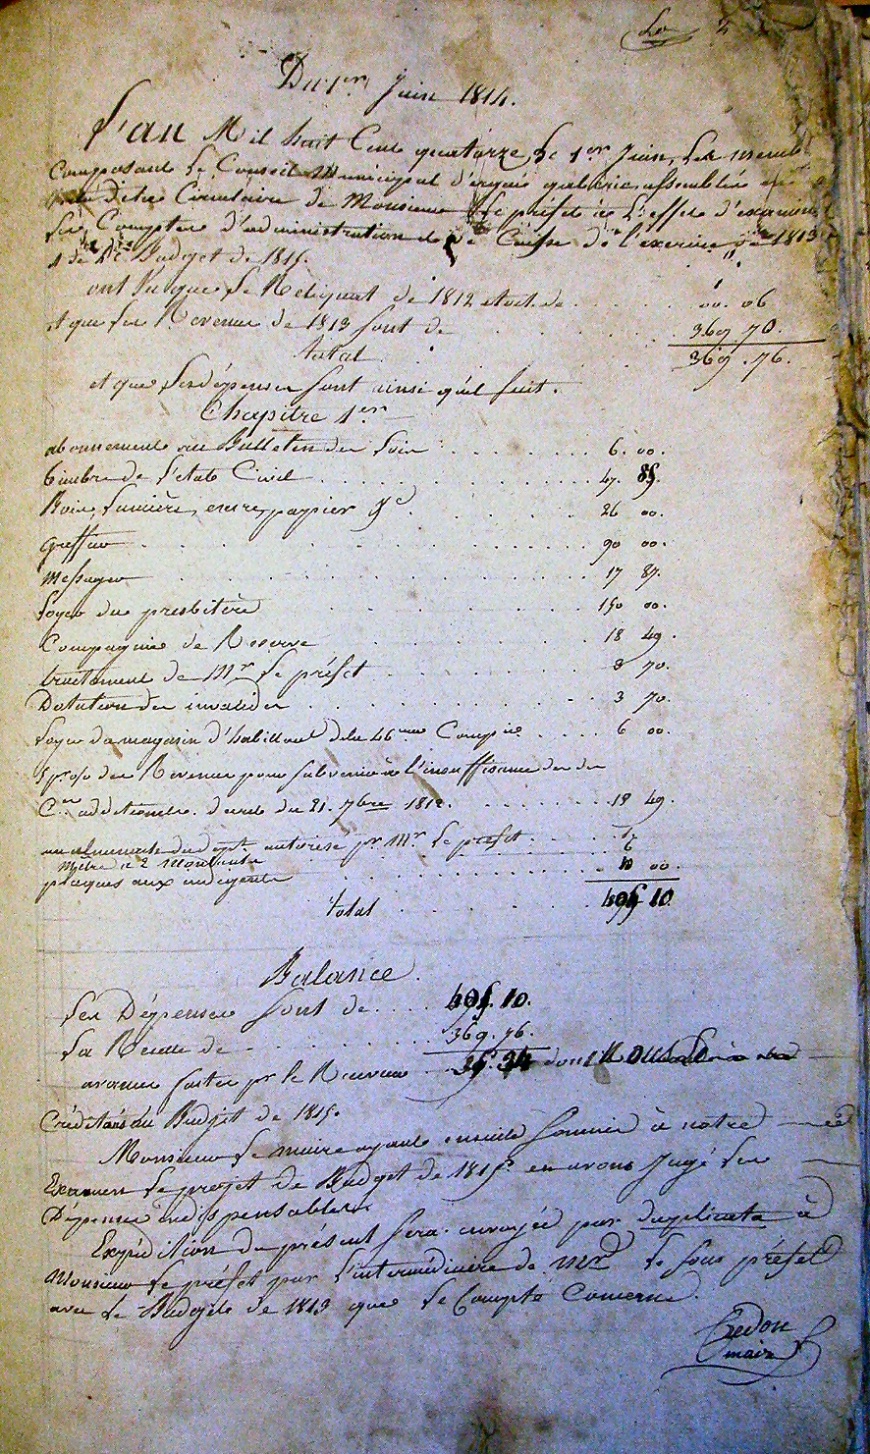 Du 1er Juin 1814.
L'an Mil huit Cent quatorze, le 1er Juin, Les memb
Composant Le Conseil Municipal d' assemblés
Circulaire de Monsieur Le préfet à L'effet d'examiner
Les Comptes d'administration de Caisse de l'exercice 1813
Budget de 1815.
ont Vu que Le Reliquat de 1812 etoit de 00. 06
et que les Revenus de 1813 sont de 369 70.
total 369. 76.
et que les dépenses sont ainsi qu'il suit.
Chapitre 1er
abonnement au Bulletin des Loix 6. 00.
timbre de l'état Civil 47.
Bois, Lumière, encre, papier &c 26 00.
Greffier 90 00.
Messager 17 87.
Loyer du presbitère 150 00.
Compagnie de Reserve 18 49.
traitement de Mr Le préfet 8 70.
Dotation des invalides 3 70.
Loyer du magasin d'habillemt de la 46me Compie 6 00.
des Revenus pour subvenir à l'insuffisance des
Cen additionels. decret du 21. 7bre 1812. 18 49.
autorisé pr Mr Le préfet
Mètre
plaques aux indigents 00.
total 10
Balance
Les Dépenses sont de 10.
La Recette de 369. 76.
avance faite pr le Receveur dont
Crédités au Budget de 1815.
Monsieur Le maire ayant ensuite soumis à notre
Examen Le projet de Budget de 1815. en avons Jugé Les
Dépenses indispensables.
Expédition du présent sera envoyée par duplicata à
Monsieur Le préfet par L'intermédiaire de Mr Le Sous préfet
avec Le Budget de 1813 que Le Compte Concerne.
Gedon
maire